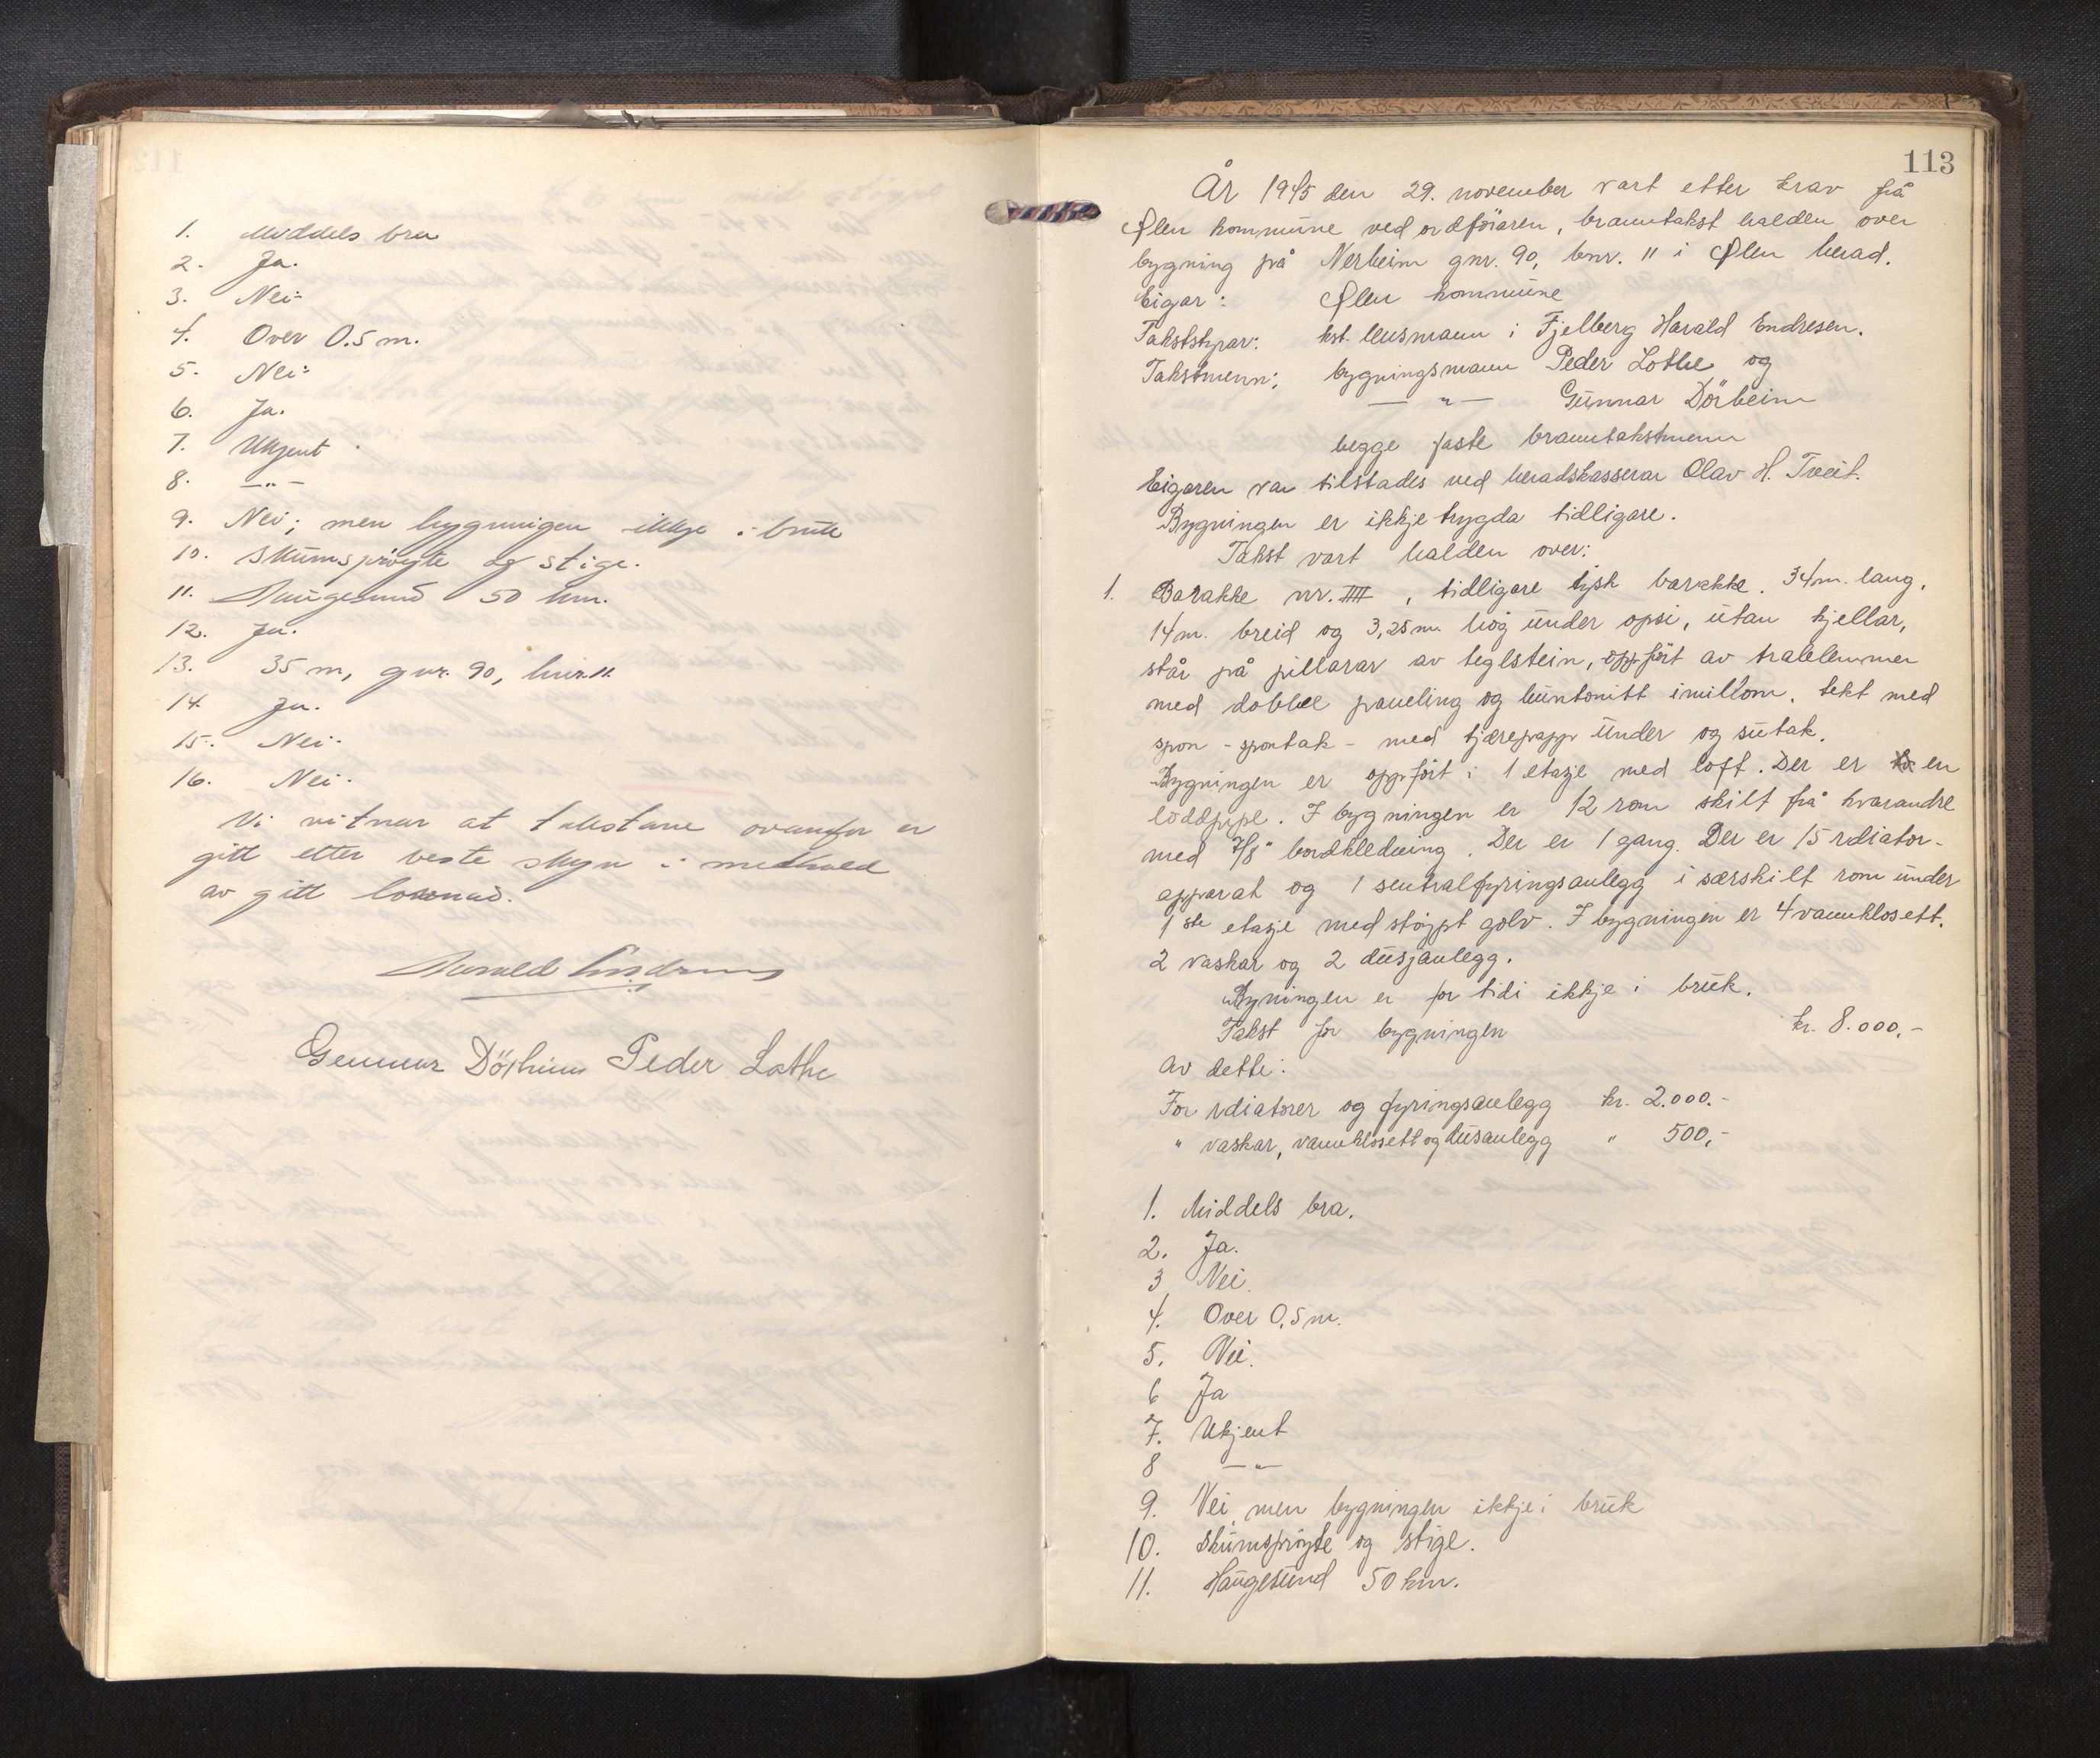 1. Middels bra
2. Ja.
3. Nei-
4. Over 0.5 m.
5. Nei-
6. Ja.
7. Ukjent
8. —"—
9. Nei; men bygningen ikkje i bruk
10. Skumsprøyte og stige.
11. Haugesund 50 km.
12. Ja.
13. 35 m, gnr. 90, bnr. 11
14. Ja.
15. Nei-
16. Nei-
Vi vitnar at takstane ovanfor er
gitt etter beste skyn i medhald
av gitt lovnad.
Harald Endresen
Gunnar Dörheim Peder Lothe
113
År 1945 den 29. november vart etter krav frå
Ølen kommune ved ordföraren, branntakst halden over
bygning på Nerheim gnr. 90, bnr. 11 i Ølen herad.
Eigar: Ølen kommune
Takststyrar: kst. lensmann i Fjelberg Harald Endresen.
Takstmenn: bygningsmann Peder Lothe og
— " — Gunnar Dörheim
begge faste branntakstmenn
Eigaren var tilstades ved heradskasserar Olav H. Tveit.
Bygningen er ikkje trygda tidligare.
Takst vart halden over:
1. Barakke nr. IIII, tidligare tysk barakke. 34 m. lang,
14 m. breid og 3,25 m. høg under opsi, utan kjellar,
står på pillarar av teglstein, oppfört av trælemmer
med dobbel paneling og huntonitt imillom, tekt med
spon - spontak - med tjærepapp under og sutak.
Bygningen er oppfört i 1 etasje med loft. Der er en
loddpipe. I bygningen er 12 rom skilt frå hvarandre
med 7/8" bordkledning. Der er 1 gang. Der er 15 rdiator-
apparat og 1 sentralfyringsanlegg i særskilt rom under
1ste etasje med støypt golv. I bygningen er 4 vannklosett.
2 vaskar og 2 dusjanlegg.
Bygningen er for tidi ikkje i bruk.
Takst for bygningen kr. 8.000,-
Av dette:
For rdiatorer og fyringsanlegg kr. 2.000.-
" vaskar, vannklosett og dusanlegg " 500,-
1. Middels bra.
2. Ja.
3 Nei.
4. Over 0,5 m.
5. Nei.
6 Ja
7. Ukjent
8 —"—
9. Nei, men bygningen ikkje i bruk
10. Skumsprøyte og stige.
11. Haugesund 50 km.